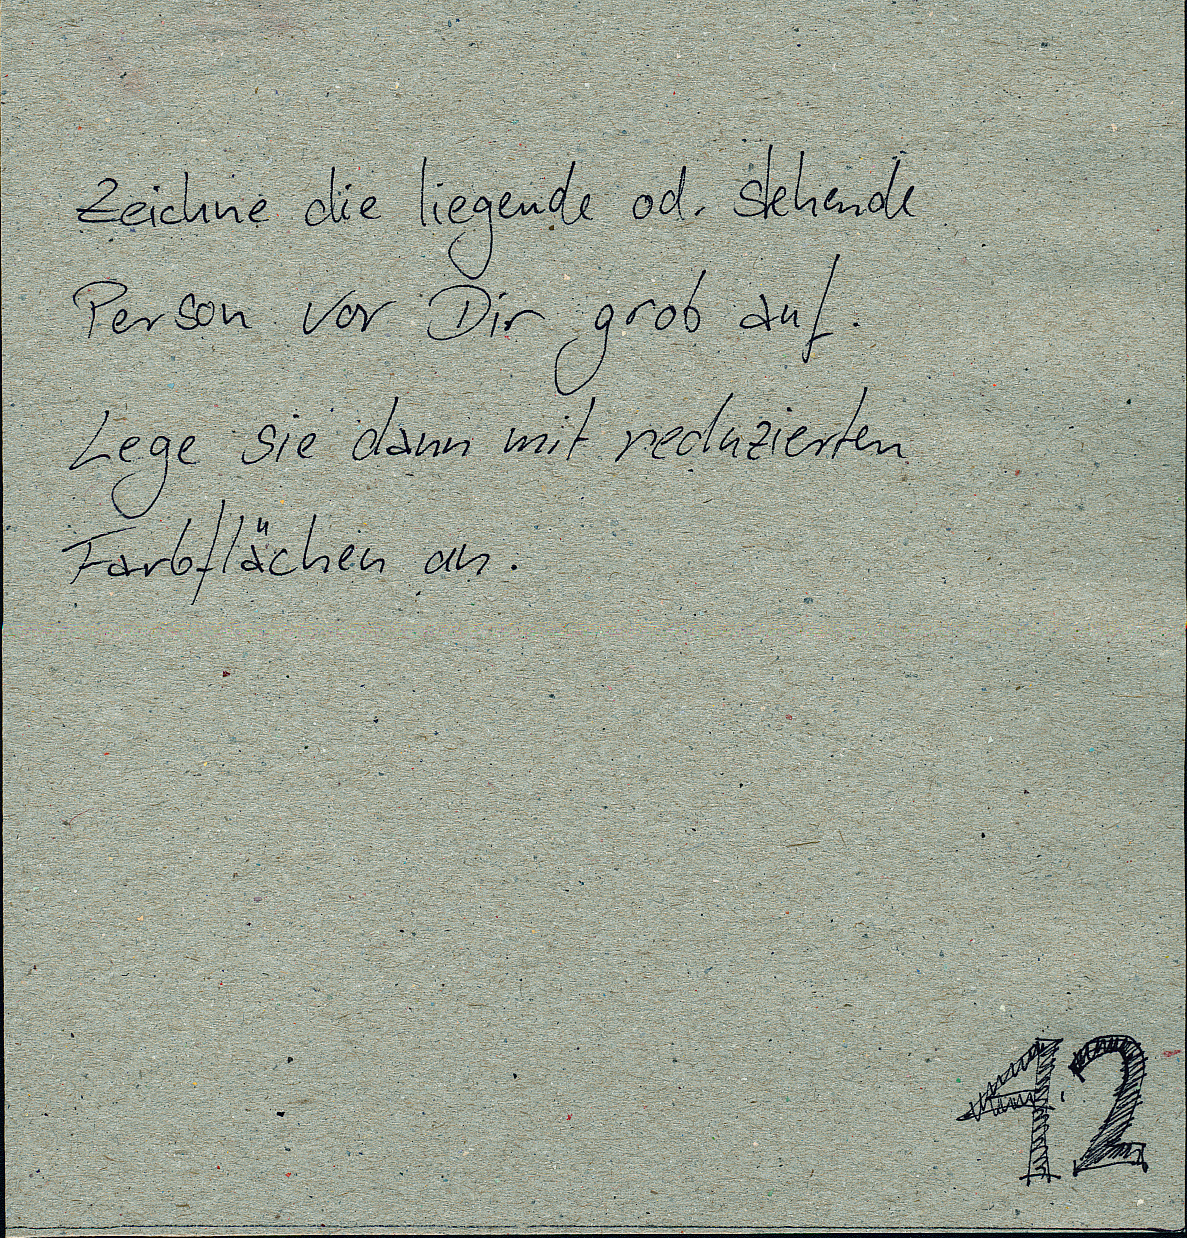 Zeichne die liegende od. stehende
Person vor Dir grob auf.
Lege sie dann mit reduzierten
Farbflächen an.
42